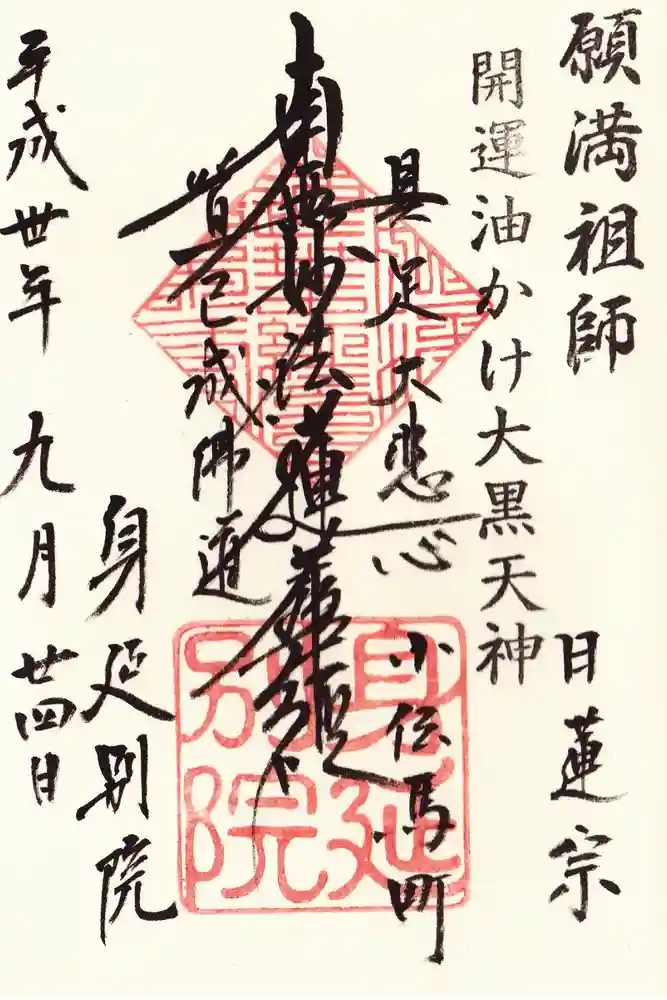 願満祖師
日蓮宗
開運油かけ大黒天神
具足大悲心
小伝馬町
南無妙法蓮華経
皆已成佛道
身延別院
平成卅年
九月廿四日
身延別院